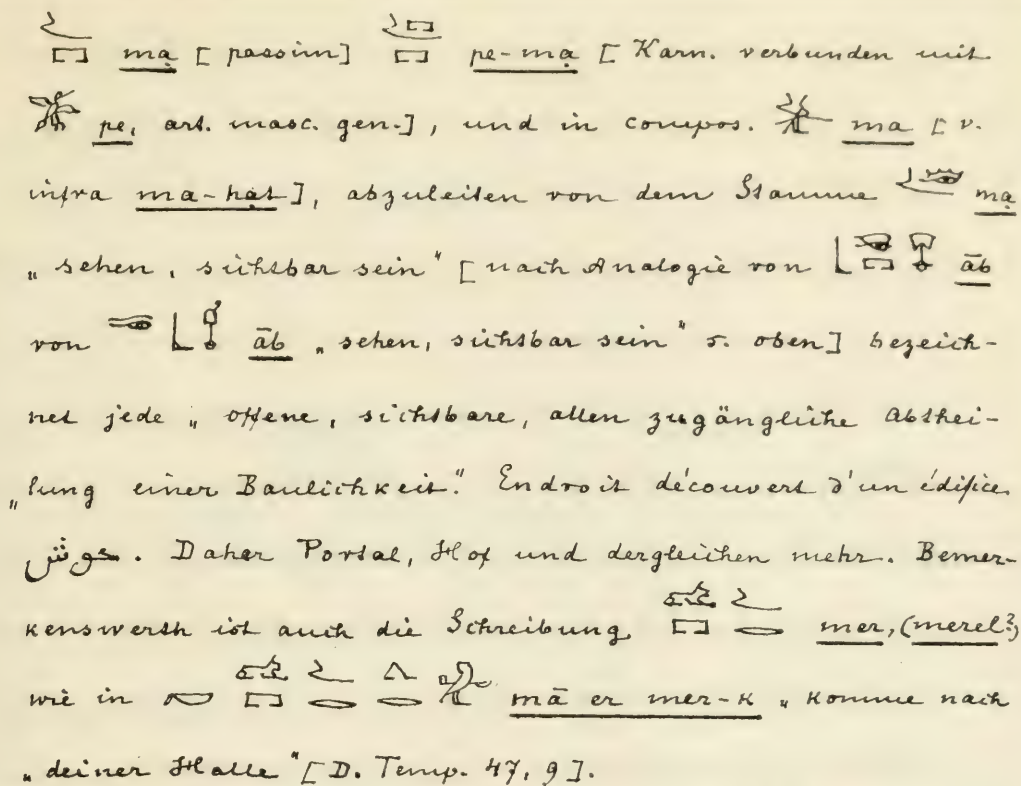 mạ [passim] pe-mạ [Karn. verbunden mit
pe, art. masc. gen.], und in compos. ma [v.
infra ma-hạt], abzuleiten von dem Stamme mạ
„sehen, sichtbar sein" [nach Analogie von āb
von āb „sehen, sichtbar sein" s. oben] bezeich-
net jede „offene, sichtbare, allen zugängliche Abthei-
„lung einer Baulichkeit". Endroit découvert d'un édifice
حوش. Daher Portal, Hof und dergleichen mehr. Bemer-
kenswerth ist auch die Schreibung mer, (merel?)
wie in mā er mer-k „komme nach
„deiner Halle" [D. Temp. 47, 9].